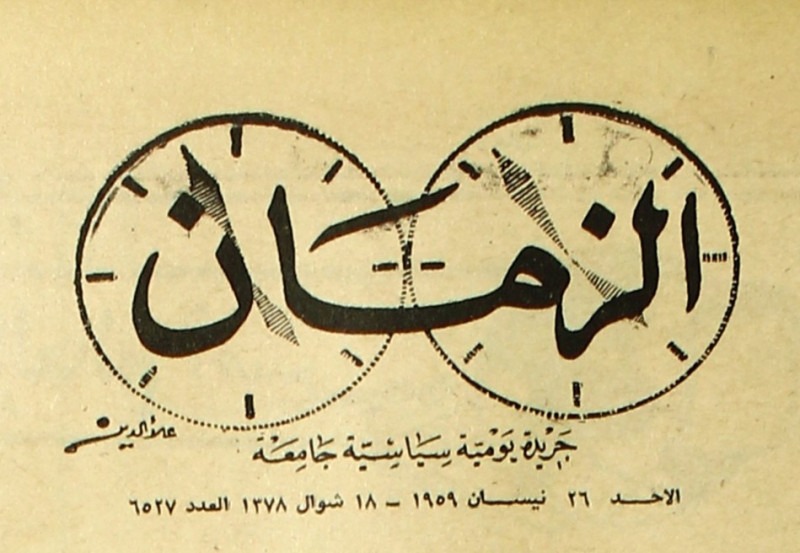 الزمان
علاءالدين
جَريدة يَوْميّة سِيَاسْيّة جَامِعَة
الاحد ٢٦ نيسان ١٩٥٩ – ١٨ شوال ١٣٧٨ العدد ٦٥٢٧